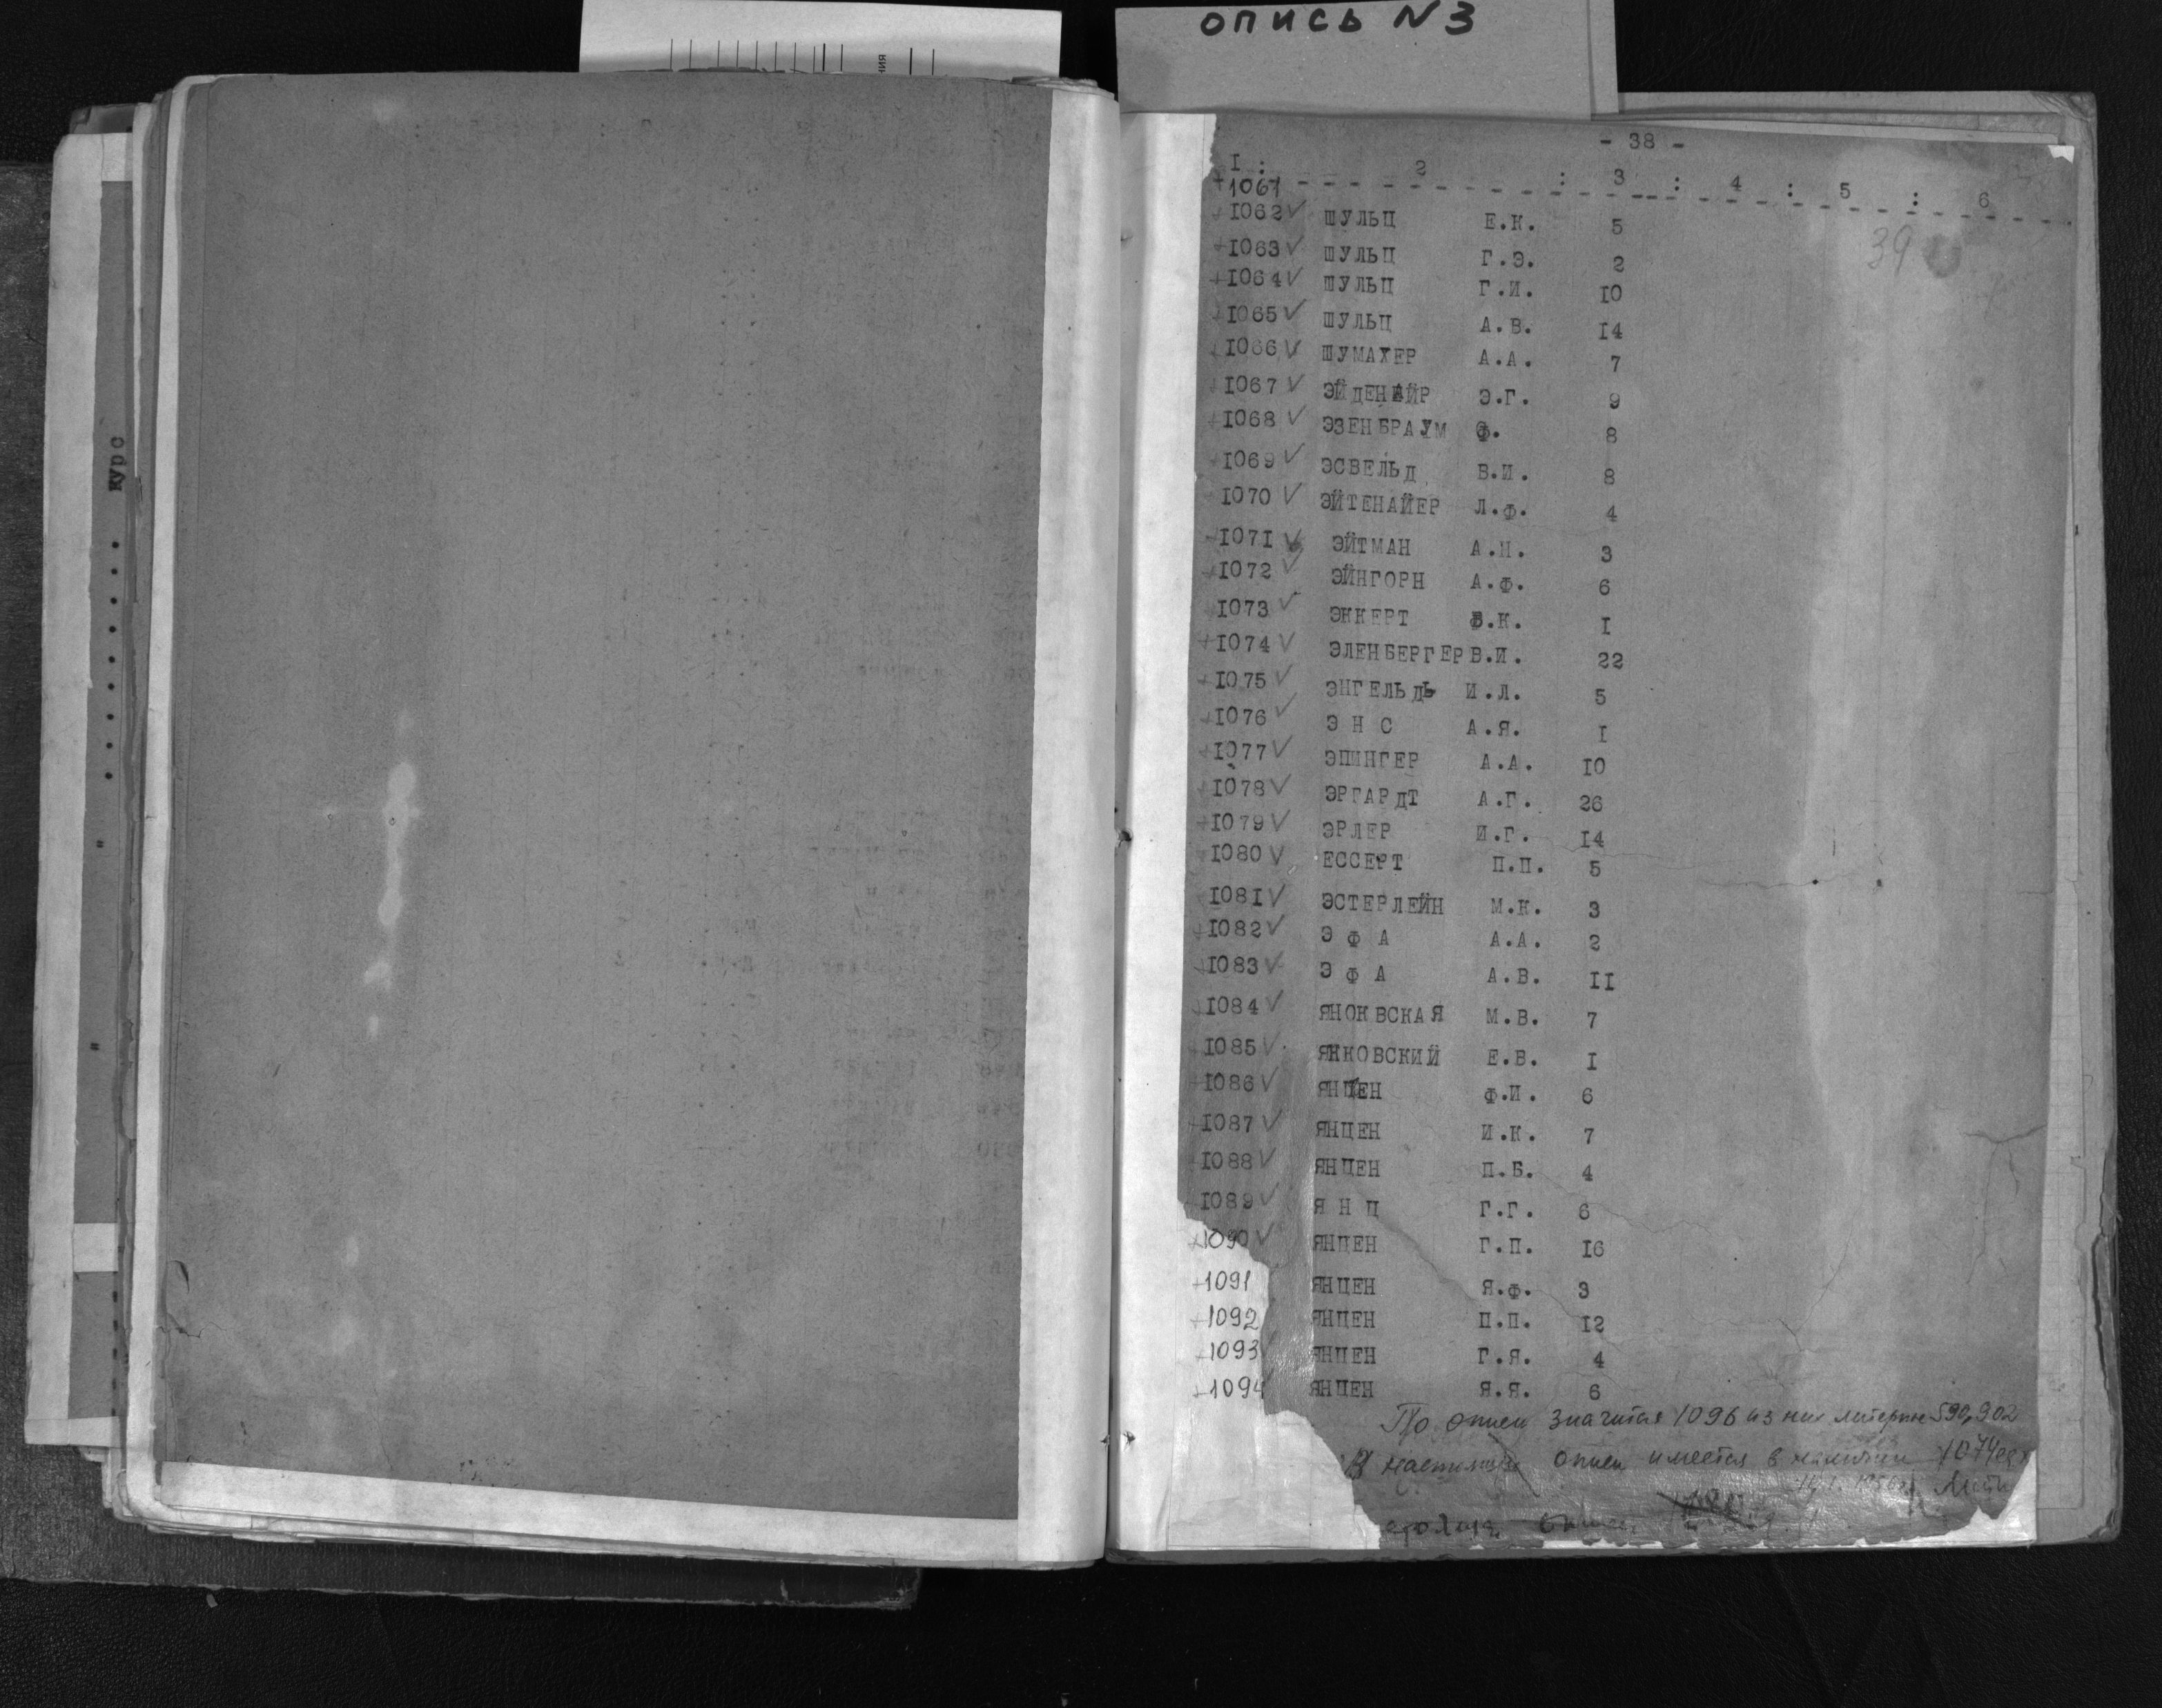 опись N 3
курс
- 38 -
I : 2 : 3 : 4 : 5 : 6
1061
1062 ШУЛЬЦ Е.К. 5
39
1063 ШУЛЬЦ Г.Э. 2
1064 ШУЛЬЦ Г.И. IO
1065 ШУЛЬЦ А.В. I4
1066 ШУМАХЕР А.А. 7
1067 ЭЙДЕНАЙР Э.Г. 9
1068 ЭЗЕНБРАУМ Ф. 8
1069 ЭСВЕЛЬД В.И. 8
1070 ЭЙТЕНАЙЕР Л.Ф. 4
1071 ЭЙТМАН А.И. 3
1072 ЭЙНГОРН А.Ф. 6
1073 ЭККЕРТ В.К. I
1074 ЭЛЕНБЕРГЕР В.И. 22
1075 ЭНГЕЛЬДЬ И.Л. 5
1076 Э Н С А.Я. I
1077 ЭПИНГЕР А.А. IO
1078 ЭРГАРДТ А.Г. 26
1079 ЭРЛЕР И.Г. I4
1080 ЕССЕРТ П.П. 5
1081 ЭСТЕРЛЕЙН М.К. 3
1082 Э Ф А А.А. 2
1083 Э Ф А А.В. II
1084 ЯНОКВСКАЯ М.В. 7
1085 ЯНКОВСКИЙ Е.В. I
1086 ЯНЦЕН Ф.И. 6
1087 ЯНЦЕН И.К. 7
1088 ЯНЦЕН П.Б. 4
1089 Я Н Ц Г.Г. 6
1090 ЯНЦЕН Г.П. I6
1091 ЯНЦЕН Я.Ф. 3
1092 ЯНЦЕН П.П. I2
1093 ЯНЦЕН Г.Я. 4
1094 ЯНЦЕН Я.Я. 6
По описи значится 1096 из них литерные 590, 902
В описи имеется в наличии 1074 ед